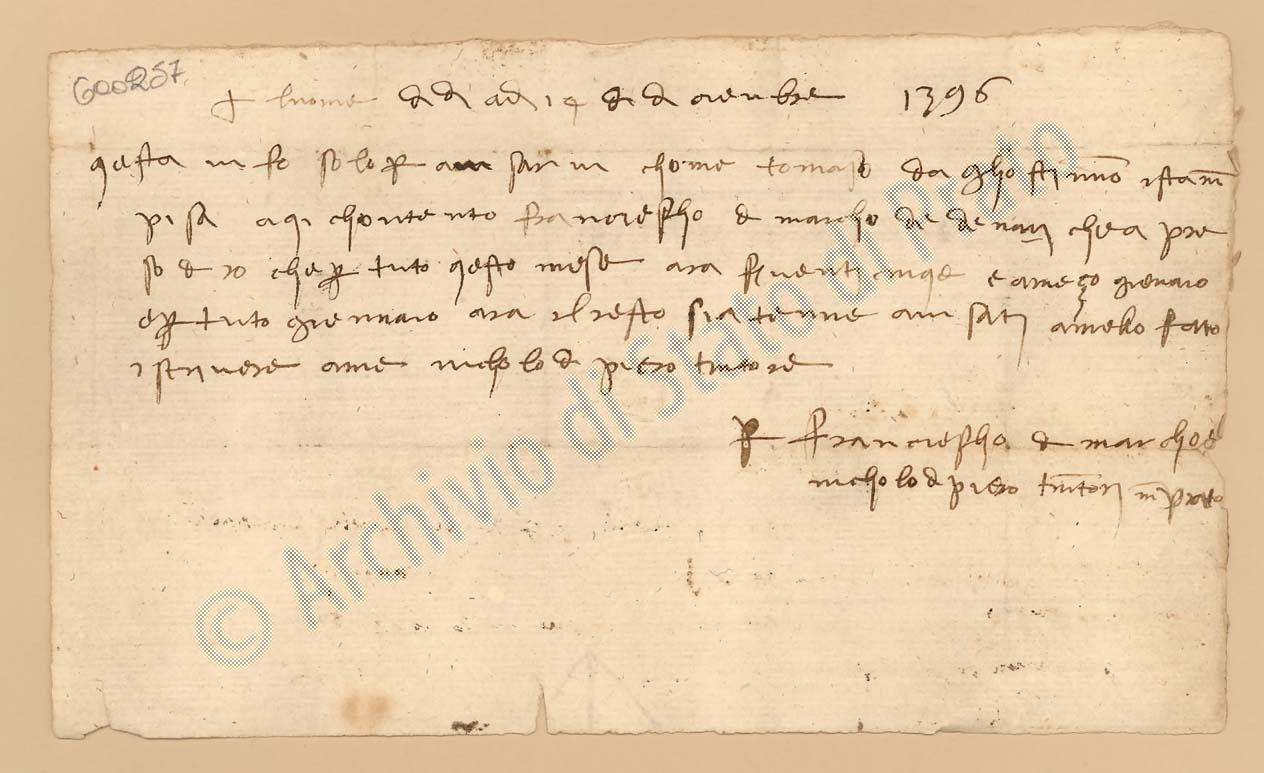 600257
† Inome di dio adi 14 di diciembre 1396
qesta vi fo solo per avisarvi chome tomaso d aghostino istam
pisa a qi chontento franciescho di marcho de denari che a pre
so di cho per tuto qesto mese ara f venticinqe e a meço gienaio
e per tuto giennaio ara il resto siatenne avisati a mello fatto
iscrivere a me nicholo di piero tintore
per franciescho di marcho e
nicholo di piero tintori in prato
© Archivio di Stato di Prato